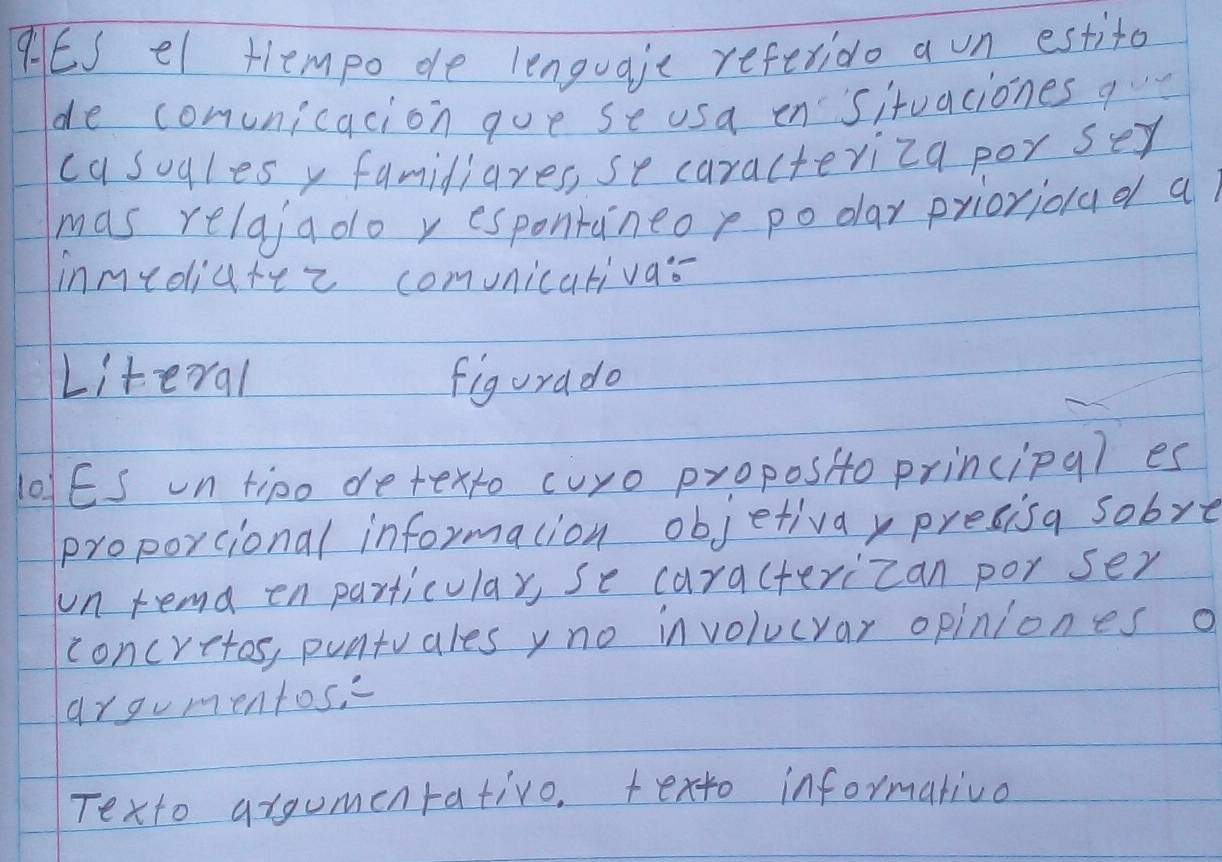 9.- Es el tiempo de lenguaje referido a un estito
de comunicación que se usa en situaciones que
casuales y familiares, se caracteriza por ser
mas relajado y espontáneo y po dar prioridad a l
inmediatez comunicativa:-
Literal figurado
10.- Es un tipo de texto cuyo proposito principal es
proporcional informacion objetiva y precisa sobre
un tema en particular, se caracterizan por ser
concretos, puntuales y no involucrar opiniones o
argumentos:-
Texto argumentativo. texto informativo